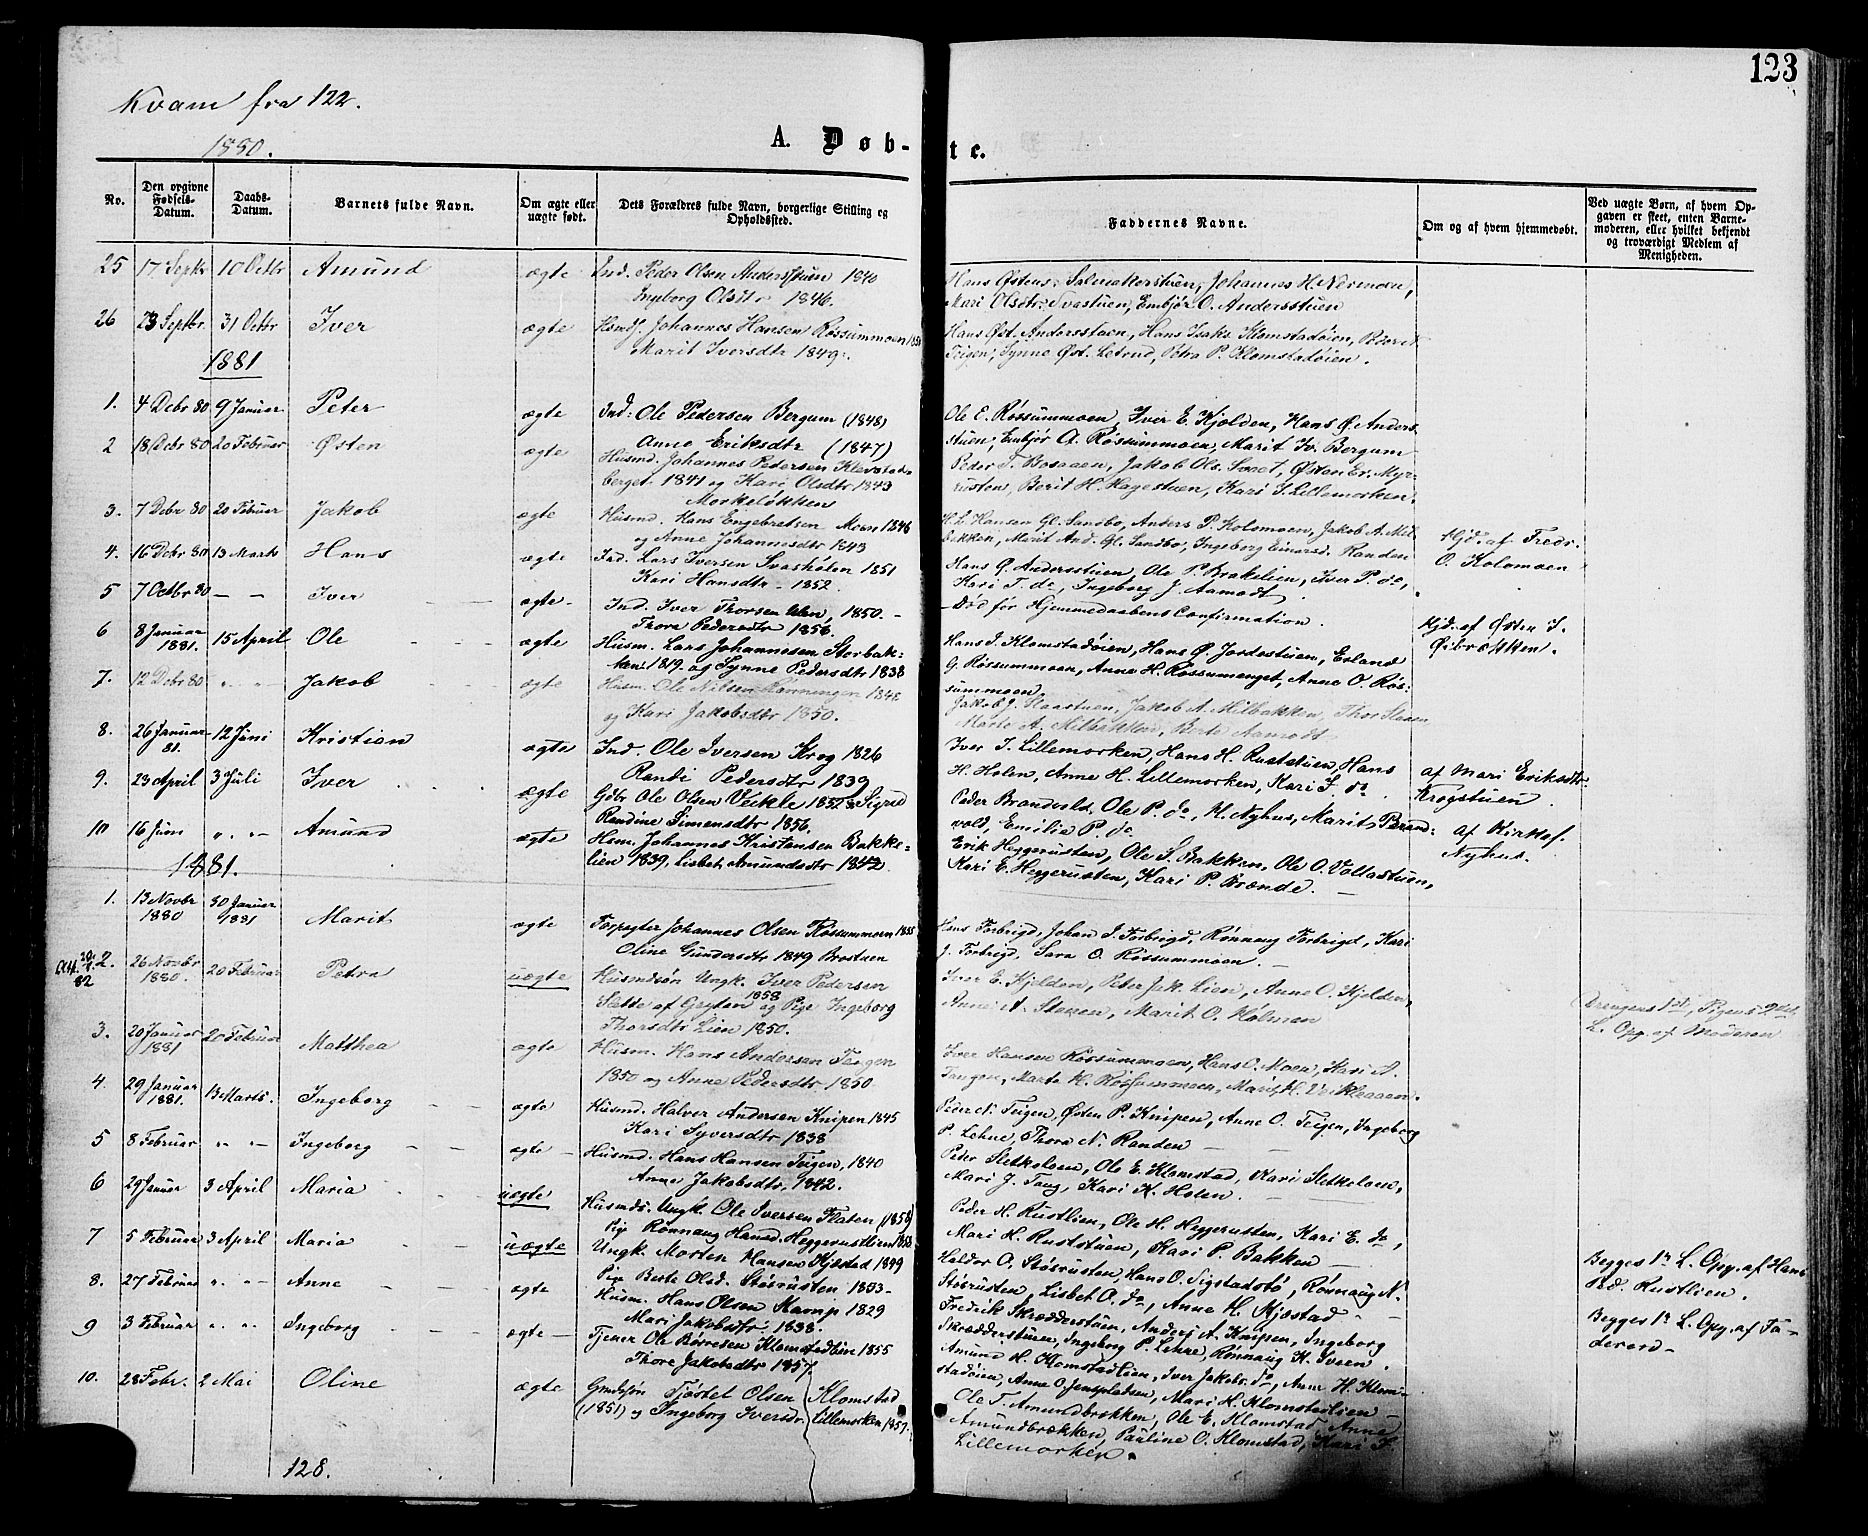 123
Kvam fra 122.
1880.
A. Døb-te.
No.
Den opgivne Fødsels-Datum.
Daabs-Datum.
Barnets fulde Navn.
Om ægte eller uægte født.
Dets Forældres fulde Navn, borgerlige Stilling og Opholdssted.
Faddernes Navne.
Om og af hvem hjemmedøbt.
Ved uægte Børn, af hvem Op-
gaven er skeet, enten Barne-
moderen, eller hvilket bekjendt
og troværdigt Medlem af
Menigheden.
25 17 Septbr 10 Octbr Amund ægte Ind. Peder Olsen Andersstuen 1840
Ingeborg Olsdtr 1846.
Johannes H. Nørmoen,
Mari Olsdtr. Svastuen, Embjør O. Andersstuen
26 23 Septbr. 31 Octbr Iver ægte Husmdf. Johannes Hansen Røssummoen
Marit Iversdtr 1849.
Hans Øst. Andersstuen, Hans Isaks. Klomstadøien, Berit
Teigen, Synne Øst. Letrud, Petra P. Klomstadøien.
1881
1. 4 Debr 80 9 Januar Peter ægte Ind: Ole Pedersen Bergum (1848)
Anne Eriksdtr (1847)
Ole E. Røssummoen, Iver E. Kjølden, Hans Ø. Anders-
stuen, Embjør A. Røssummoen, Marit Iv. Bergum
2 18 Debr 80 20 Februar Østen ægte Husmd. Johannes Pedersen Klevstad-
berget 1841 og Kari Olsdtr 1843
Morkeløkken
Peder T. Bosaaen, Jakob Ols. Svaet, Østen Er. Myr-
rusten, Berit H. Hagestuen, Kari I. Lillemorken.
3. 7 Debr 80 20 Februar Jakob ægte Husmd. Hans Engebretsen Moen 1848
og Anne Johannesdtr 1843
H. L. Hansen Gl. Sandbo, Anders P. Kolomoen, Jakob A. Mil-
bakken, Marit And. Gl. Sandbo, Ingeborg Einarsd. Randen
Hjd. af Fredr.
O. Kolomoen
4. 16 Debr 80 13 Marts Hans ægte Ind. Lars Iversen Svasholen 1851
Kari Hansdtr 1852.
Hans Ø. Andersstuen, Ole P. Brakelien, Iver P. do,
Kari T. do, Ingeborg J. Aamodt.
5 7 Octbr 80 — — Iver ægte Ind. Iver Thorsen 1850.
Thora Pedersdtr 1856.
Død før Hjemmedaabens Confirmation.
Hjd. af Østen I.
Øibrækken.
6 8 Januar 1881. 15 April Ole ægte Husm. Lars Johannesen Storbak-
ken 1819 og Synne Pedersdtr 1838
Hans I. Klomstadøien, Hans Ø. Jordestuen, Erland
G. Røssummoen, Anne H. Røssumenget, Anne O. Røs-
summoen.
7. 12 Debr 80 " " Jakob ægte Husm. Ole Nilsen Rønningen
og Kari Jakobsdtr 1850.
Jakob J. Haastuen, Jakob A. Milbakken, Thor Steen
Marte A. Milbakken, Berte Aamodt
8. 26 Januar 81. 12 Juni Kristian ægte Ind. Ole Iversen Krog 1826
Randi Pedersdtr 1839
Iver I. Lillemorken, Hans H. Ruststuen, Hans
H. Holen, Anne H. Lillemorken, Kari I. do
af Mari Eriksdtr
Krogstuen
9. 23 April 3 Juli Iver ægte Gdbr Ole Olsen Veikle 1852 & Sigrid
Randine Simensdtr 1856.
Peder Brandvold, Ole P. do, H. Nyhus, Marit Brand-
vold, Emilia P. do
af Kirkes.
Nyhus.
10 16 Juni " " Amund ægte Husm. Johannes Kristensen Bakke-
lien 1839, Lisbet Amundsdtr 1842
Erik Heggerusten, Ole S. Bakken, Ole O. Vollastuen,
Kari E. Heggerusten, Kari P. Brænde.
1881.
1. 13 Novbr 1880 30 Januar 1881 Marit ægte Forpagter Johannes Olsen Røssummoen 1855
Oline Gundersdtr 1849 Brostuen
Hans Forbrigd, Johan J. Forbrigd, Rønnaug Forbrigd, Kari
J. Forbrigd, Sara O. Røssummoen.
2. 26 Novbr 1880. 20 Februar Petra uægte Husmdsøn Ungk. Iver Pedersen
Slette af Gryten 1858 og Pige Ingeborg
Thorsdtr Lien 1850.
Iver E. Kjølden, Peter Jak. Lien, Anne O. Kjølden,
Anne A. Steen, Marit O. Holmen
Drengens 1st, Pigens 2det
L. Opg. af Moderen
3. 20 Januar 1881 20 Februar Matthea ægte Husm. Hans Andersen Teigen
1850 og Anne Pedersdtr 1850.
Iver Hansen Røssummoen, Hans O. Moen, Kari A.
Tangen, Marte H. Røssummoen, Marit H. Veikleaaen.
4. 29 Januar 1881. 13 Marts. Ingeborg ægte Husmd. Halvor Andersen Knipen 1845
Kari Syversdtr 1838
Peder N. Teigen, Østen P. Knipen, Anne O. Teigen, Ingeborg
P. Lehne, Thora N. Randen
5 8 Februar " " Ingeborg ægte Husmd. Hans Hansen Teigen, 1840
Anne Jakobsdtr, 1842.
Peder Sletkolen, Ole E. Klomstad, Kari Sletkolen,
Mari J. Taug, Kari K. Holen.
6 29 Januar 3 April Maria uægte Husmds. Ungk. Ole Iversen Flaten (1858)
Pig. Rønnaug Hansd. Heggerustlien
Peder H. Rustlien, Ole H. Heggerusten, Kari E. do,
Mari H. Ruststuen, Kari P. Bakken
Begges 1st L. Opg. af Hans
Pd. Rustlien.
7 5 Februar 3 April Maria uægte Ungk. Morten Hansen Kjæstad 1849
Pig. Berte Olsd. Størusten 1853
Haldor O. Størusten, Hans O. Sigstadstø, Rønnaug N.
Størusten, Lisbet O. do, Anne H. Kjæstad
Begges 1st L. Opg. af Fa-
deren
8. 27 Februar " " Anne ægte Husm. Hans Olsen Kamp 1829
Mari Jakobsdtr 1838.
Fredrik Skrædderstuen, Anders A. Knipen, Ingeborg
Skrædderstuen, Ingeborg P. Lehne, Rønnaug K. Sveen.
9 3 Februar " " Ingeborg ægte Tjener Ole Børresen Klomstadlien 1855
Thore Jakobsdtr 1857.
Amund H. Klomstadlien, Iver Jakobs. do, Anne H. Klom-
stadøien, Anne O. Jensplatsen, Mari H. Klomstadlien
10. 28 Febr. 2 Mai Oline ægte Grdmdsøn Tjøstel Olsen Klomstad
(1851) og Ingeborg Iversdtr Lillemorken 1857.
Ole T. Amundbrækken, Ole E. Klomstad, Anne
Amundbrækken, Pauline O. Klomstad, Kari I.
Lillemorken.
128.